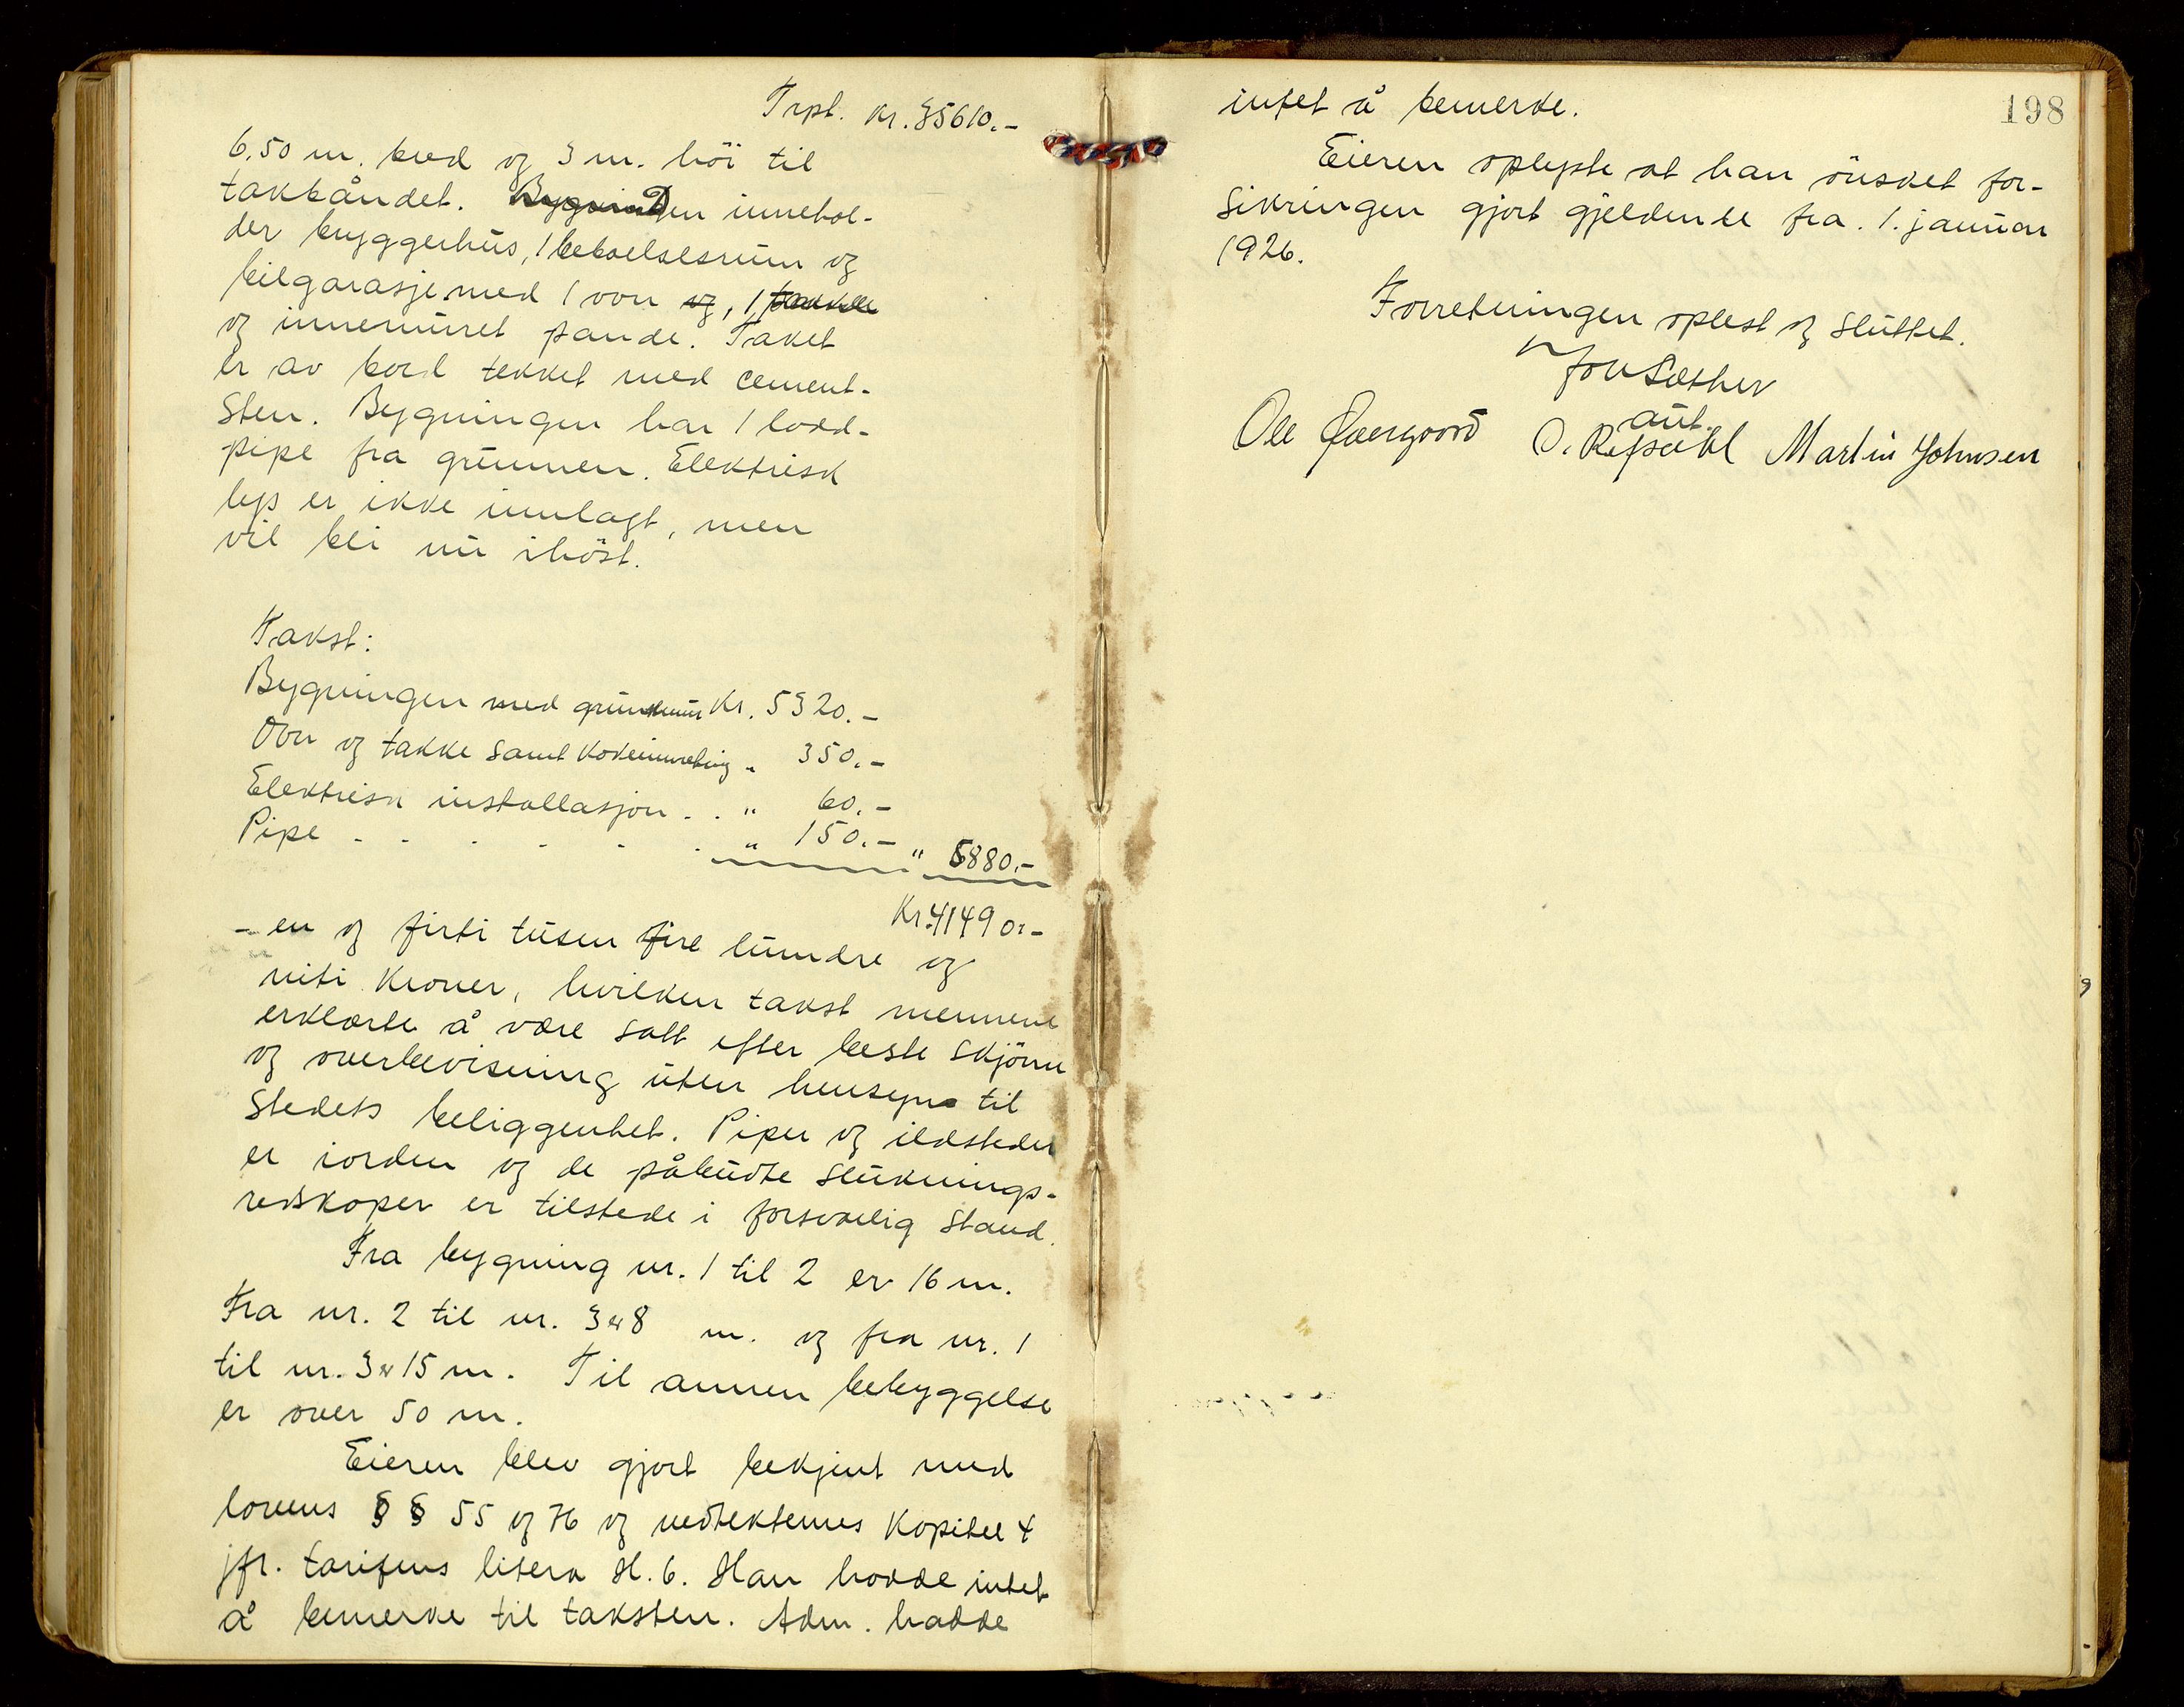 Trpt. Kr. 35610.-
6,50 m. bred og 3 m. höi til
takbåndet. Den innehol-
der bryggerhus, 1 beboelsesrum og
bilgarasje med 1 ovn og, 1 takke
og innemuret pande. Taket
er av bord tekket med cement-
sten. Bygningen har 1 lodd-
pipe fra grunnen. Elektrisk
lys er ikke innlagt, men
vil bli nu ihöst.
Takst:
Bygningen med grunnmur Kr. 5320.-
Ovn og takke samt kokeinnretning " 350.-
Elektrisk installasjon . . " 60.-
Pipe . . . . . . " 150.- " 5880.-
Kr. 41490.-
- en og firti tusen fire hundre og
niti kroner, hvilken takst mennene
erklærte å være satt efter beste skjönn
og overbevisning uten hensyn til
stedets beliggenhet. Piper og ildsteder
er iorden og de påbudte sluknings-
redskaper er tilstede i forsvarlig stand.
Fra bygning nr. 1 til 2 er 16 m.
Fra nr. 2 til nr. 3 er 8 m. og fra nr. 1
til nr. 3 er 15 m. Til annen bebyggelse
er over 50 m.
Eieren blev gjort bekjent med
lovens § § 55 og 76 og vedtektenes kapitel 4
jfr. tarifens litera H. 6. Han hadde intet
å bemerke til taksten. Adm. hadde
198
intet å bemerke.
Eieren oplyste at han önsket for-
sikringen gjort gjeldende fra. 1. januar
1926.
Forretningen oplest og sluttet.
Jon Sæther
aut.
Ole O. Refsahl Martin Johnsen